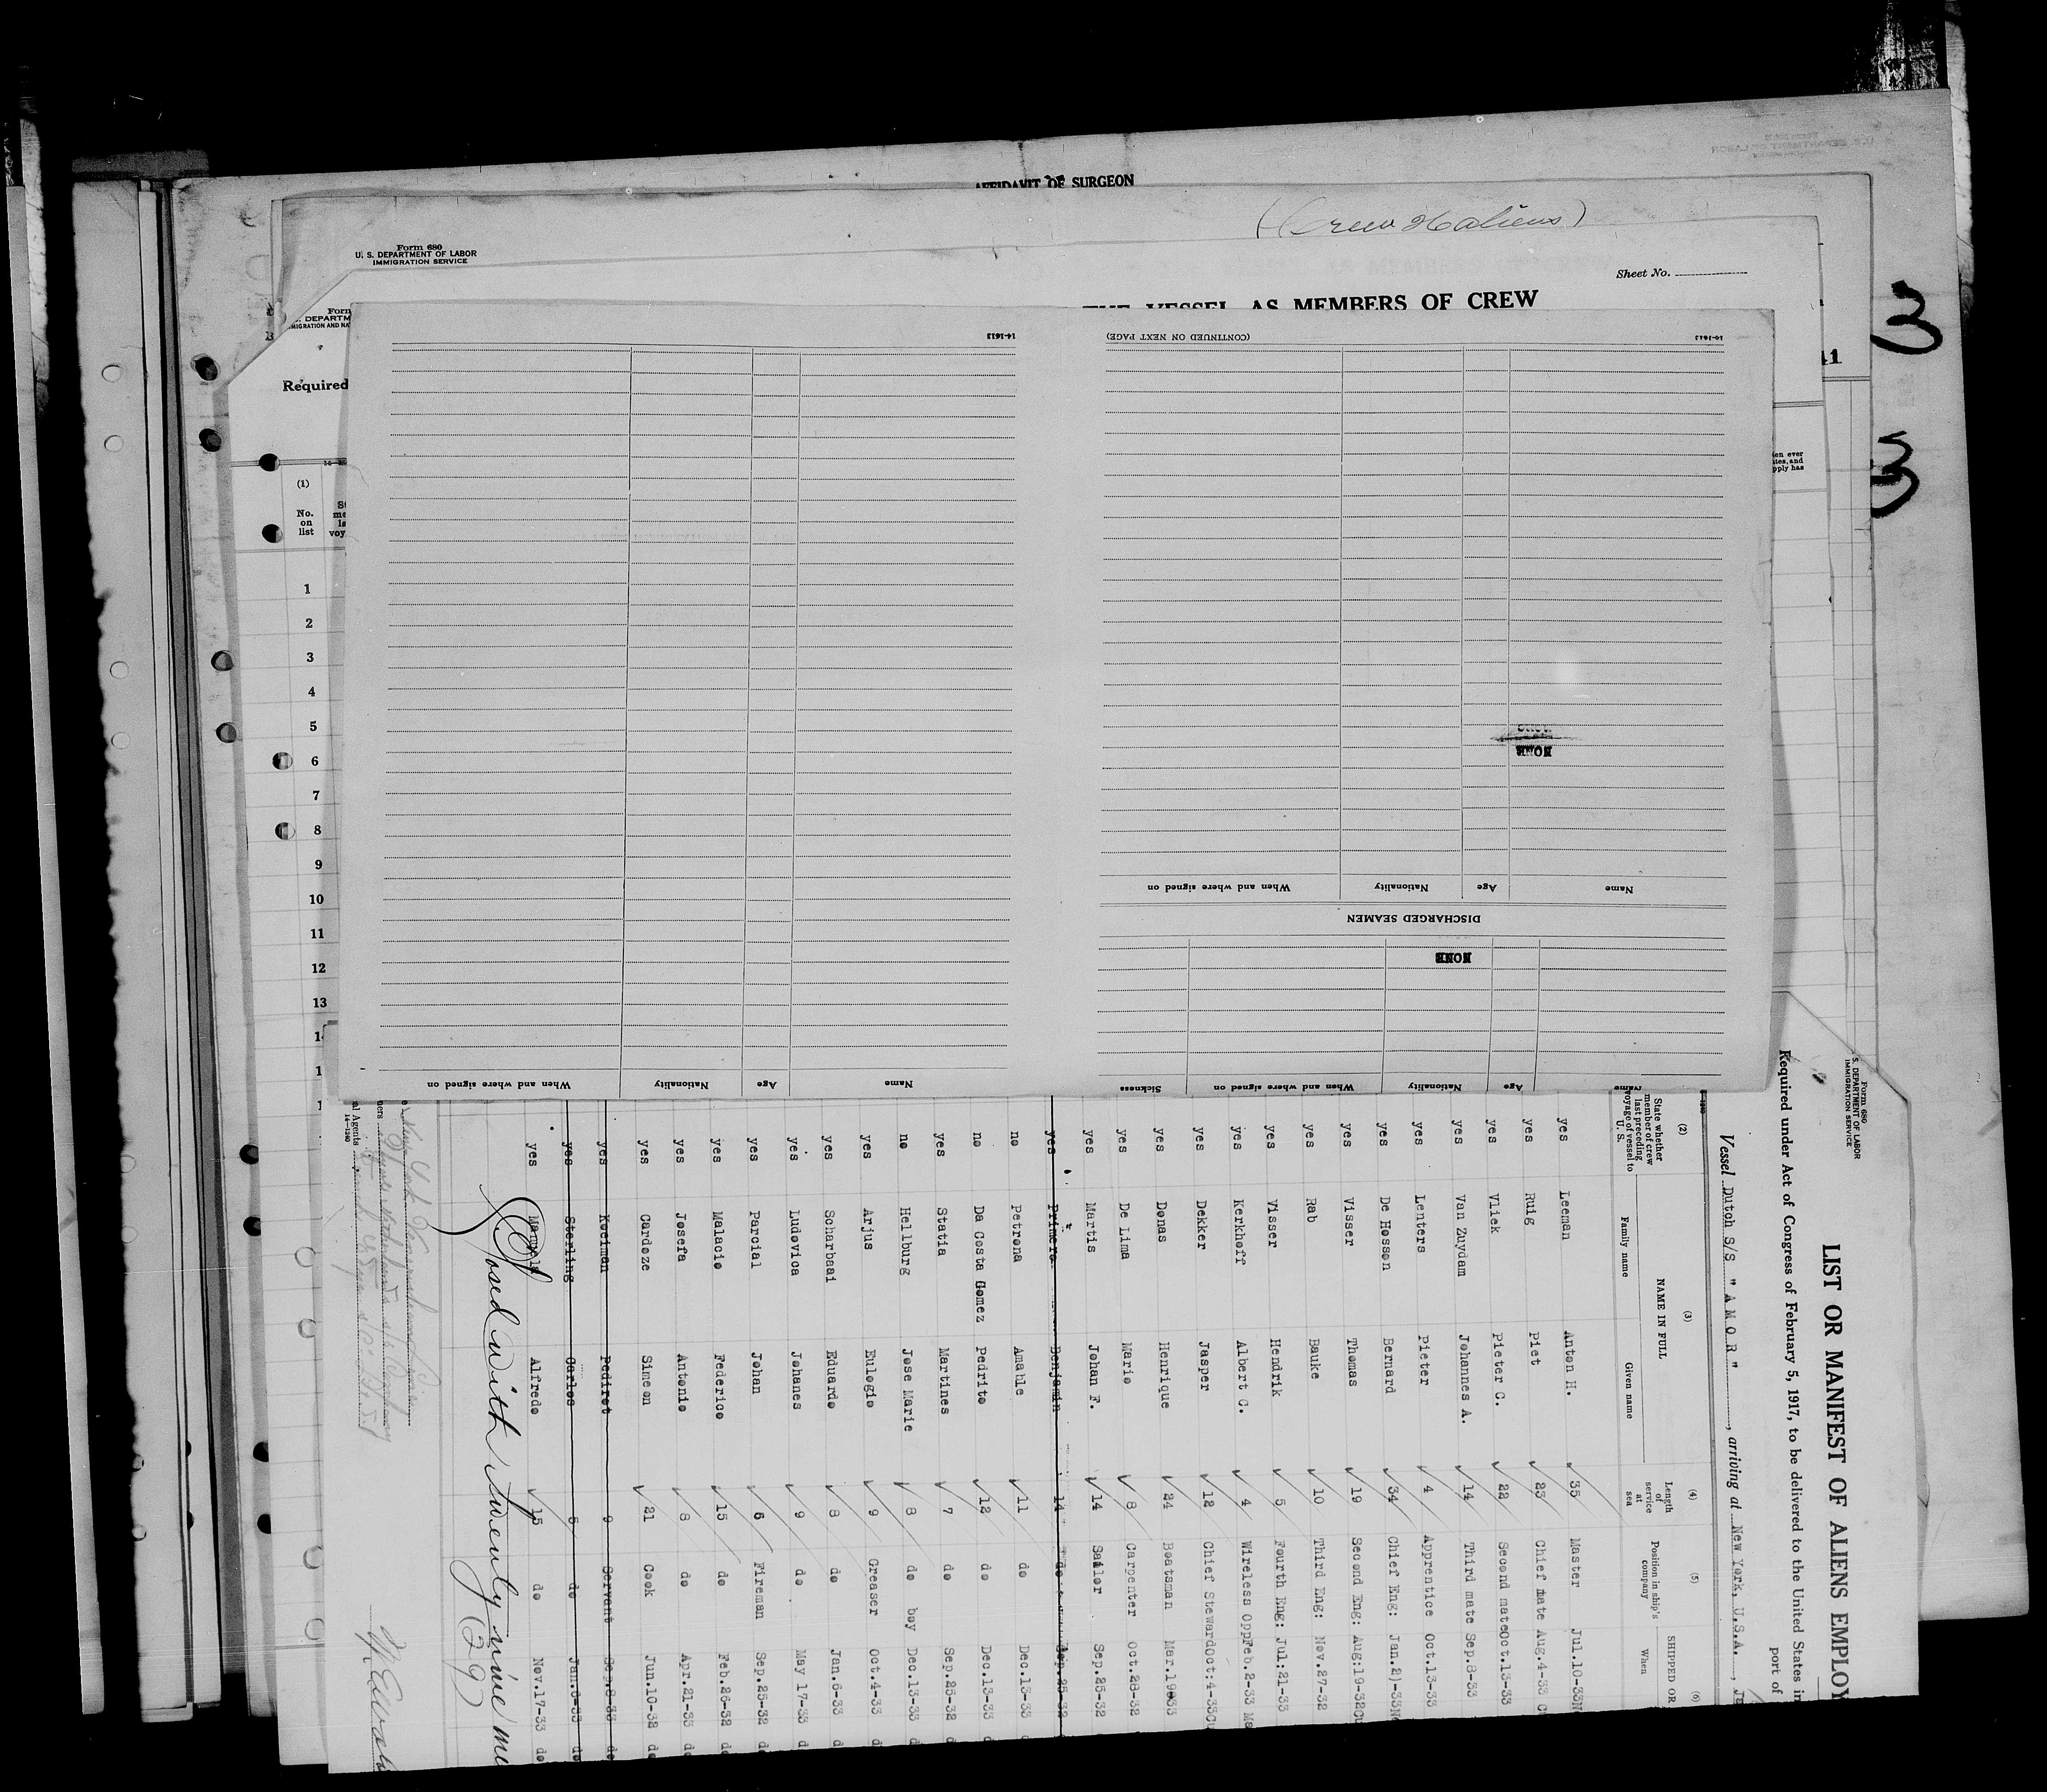 AFFIDAVIT OF SURGEON
(Crew Haliens)
Form 680
U. S. DEPARTMENT OF LABOR
IMMIGRATION SERVICE
Sheet No.
THE VESSEL AS MEMBERS OF CREW
Form
DEPARTM
MIGRATION AND NA
Required
3
41
3
en ever
tes, and
pply has
(1)
No.
on
list
St
me
la
voy
1
2
3
4
5
6
7
8
9
10
11
12
13
Name Age Nationality When and where signed on Sickness
NONE
DISCHARGED SEAMEN
Name Age Nationality When and where signed on
NONE
(CONTINUED ON NEXT PAGE)
14-1613
Name Age Nationality When and where signed on
14-1613
Form 680
S. DEPARTMENT OF LABOR
IMMIGRATION SERVICE
LIST OR MANIFEST OF ALIENS EMPLOY
Required under Act of Congress of February 5, 1917, to be delivered to the United States in
port of
Vessel Dutch S/S " A M O R ", arriving at New York, U.S.A.,
(2) (3) (4) (5) (6)
State whether member of crew last preceding voyage of vessel to U. S.
NAME IN FULL
Family name Given name
Length of service at sea
Position in ship's company
SHIPPED OR
When
yes Leeman Anton H. 35 Master Jul.10-33
yes Ruig Piet 23 Chief mate Aug.4-33
yes Vliek Pieter C. 22 Second mate Oct.13-33
yes Van Zuydam Johannes A. 14 Third mate Sep.8-33
yes Lenters Pieter 4 Apprentice Oct.13-33
yes De Hosson Bernard 34 Chief Eng: Jan.2)-33
yes Visser Thomas 19 Second Eng: Aug:19-32
yes Rab Bauke 10 Third Eng: Nov.27-32
yes Visser Hendrik 5 Fourth Eng: Jul:21-33
yes Kerkhoff Albert C. 4 Wireless Opp Feb.2-33
yes Dekker Jasper 12 Chief Steward Oct:4-33
yes Donas Henrique 24 Boatsman Mar.1933
yes De Lima Mario 8 Carpenter Oct.28-32
yes Martis Johan F. 14 Sailor Sep.25-32
yes Primero Benjamin 14 do Sep.25-32
no Petrona Amable 11 do Dec.13-33
no Da Costa Gomez Pedrito 12 do Dec.13-33
yes Statia Martines 7 do Sep.25-32
no Hellburg Jose Marie 8 do boy Dec.13-33
yes Arjus Eulogio 9 Greaser Oct.4-33
yes Scharbaai Eduardo 8 do Jan.6-33
yes Ludovica Johanes 9 do May 17-33
yes Parcial Johan 6 Fireman Sep.25-32
yes Malacio Federico 15 do Feb.26-32
yes Josefa Antonio 8 do Apr.21-33
yes Cardoze Simeon 21 Cook Jun.10-32
yes Koeiman Pediret 9 Servant Sep.8-33
yes Sterling Carlos 5 do Jan.6-33
yes Alfredo 15 do Nov.17-33
Closed with twenty nine me
(29)
al Agents
14-1240